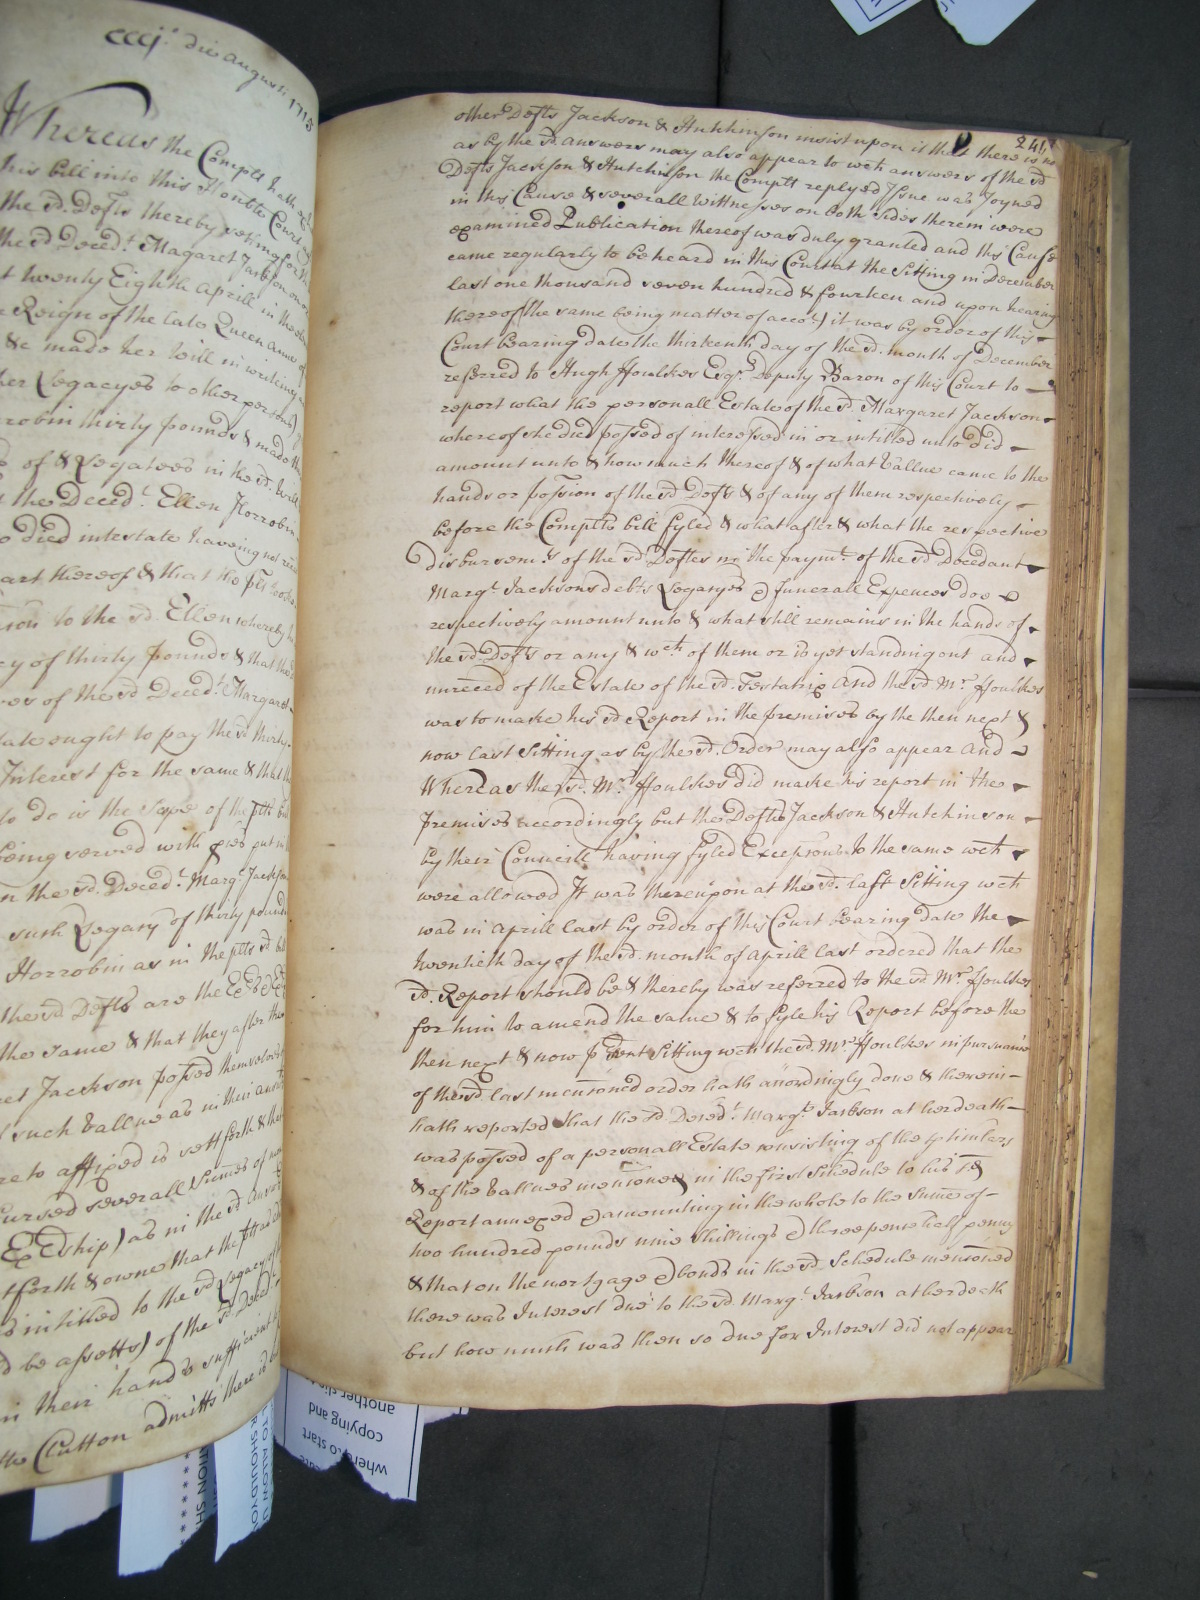 cccj.o die Augusti 1715
Whereas the Complt hath
his bill into this Honble Court
the sd. Defts thereby seting forth
the sd Deced.t Margaret Jackson on
twenty Eighth Aprill in the
Reign of the late Queen Anne
&c made her Will in writeing
her Legacyes to other persons)
rrobin thirty pounds & made
of & Legatees in the sd. Will
the Deced.t Ellen Horrobin
died intestate haveing not
art thereof & that the plt
to the sd. Ellen whereby
cy of thirty pounds & that
of the sd Deced.t Margaret
ought to pay the sd thirty
Interest for the same & that
to do is the Scope of the plts
being served with
the sd. Deced.t Marg.t Jackson
such Legacy of thirty pounds
Horrobin as in the plts sd
the sd Defts are the
the same & that they after
ret Jackson possed themselves
such vallue as in their
to affixed is sett forth &
ursed severall Summes of
Exdship) as in the sd
tforth & owne that the
intitled to the sd Legacy
be assetts) of the sd
in their hands sufficient
Clutton admitts there is
241
other Defts Jackson & Hutchinson insist upon it that there is no
as by the sd. Answers may also appear to wch answers of the sd
Defts Jackson & Hutchinson the Complt replyed Issue was Joyned
in this Cause & severall Wittnesses on both sides therein were
examined Publication thereof was duly granted and this Cause
came regularly to be heard in this Court at the Sitting in December
last one thousand seven hundred & fourteen and upon hearing
thereof (the same being matter of acco.t) it was by order of this
Court bearing date the thirteenth day of the sd. month of December
referred to Hugh ffoulkes Esq.r Deputy Baron of this Court to
report what the personall Estate of the sd. Margaret Jackson
whereof she died possed of interessed in or intitled unto did
amount unto & how much thereof & of what Vallue came to the
hands or possion of the sd Defts & of any of them respectively
before the Complts bill fyled & what after & what the respective
Disbursem.ts of the sd Deftes in the paym.t of the sd Decedant
Marg.t Jacksons debts Legacyes & funerall Expences doe
respectively amount unto & what still remains in the hands of
the sd. Defts or any & w.ch of them or is yet standing out and
unreced of the Estate of the sd. Testatrix And the sd Mr. ffoulkes
was to make his sd Report in the premises by the then next &
now last Sitting as by the sd. Order may also appear And
Whereas the sd. Mr. ffoulkes did make his report in the
premises accordingly but the Defts Jackson & Hutchinson
by their Councill having fyled Excepsons to the same wch
were allowed It was thereupon at the sd. last Sitting wch
was in Aprill last by order of this Court bearing date the
twentieth day of the sd. month of Aprill last ordered that the
sd. Report should be & thereby was referred to the sd Mr. ffoulkes
for him to amend the same & to fyle his Report before the
then next & now psent Sitting wch the sd. Mr. ffoulkes in pursuance
of the sd last mentioned order hath accordingly done & therein
hath reported that the sd Deced.t Marg.t Jackson at her death
was possed of a personall Estate consisting of the pticulars
& of the Vallues mentioned in the first Schedule to his sd
Report annexed & amounting in the whole to the Summe of
two hundred pounds nine shillings & three pence half penny
& that on the mortgage & bonds in the sd. Schedule mentioned
there was Interest due to the sd. Marg.t Jackson at her death
but how much was then so due for Interest did not appear
another sli
copying and
where to start